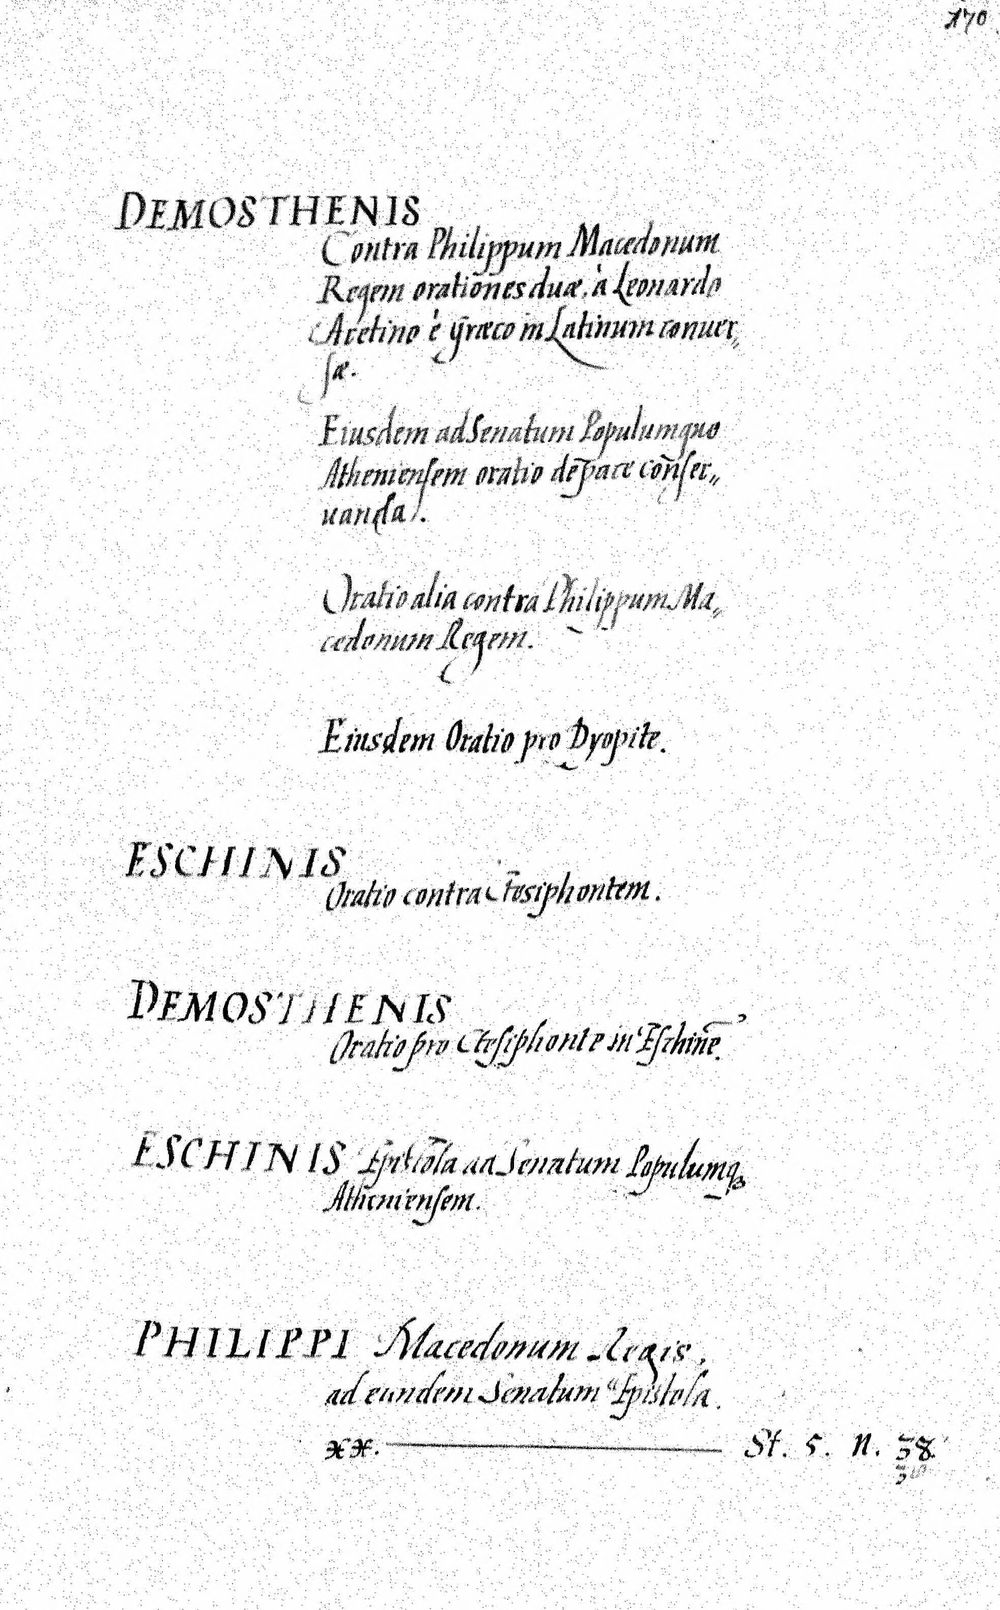 170
DEMOSTHENIS
Contra Philippum Macedonum
Regem orationes duæ, à Leonardo
Aretino è græco in Latinum conuer„
sæ.
Eiusdem ad Senatum Populumque
Atheniensem oratio de pace conser„
uanda.
Oratio alia contra Philippum Ma„
cedonum Regem.
Eiusdem Oratio pro Dyopite.
ESCHINIS
Oratio contra Ctesiphontem.
DEMOSTHENIS
Oratio pro Ctesiphonte in Eschinē.
ESCHINIS Epistola ad Senatum Populumq;
Atheniensem.
PHILIPPI Macedonum Regis,
ad eundem Senatum Epistola.
St. 5. N. 38.